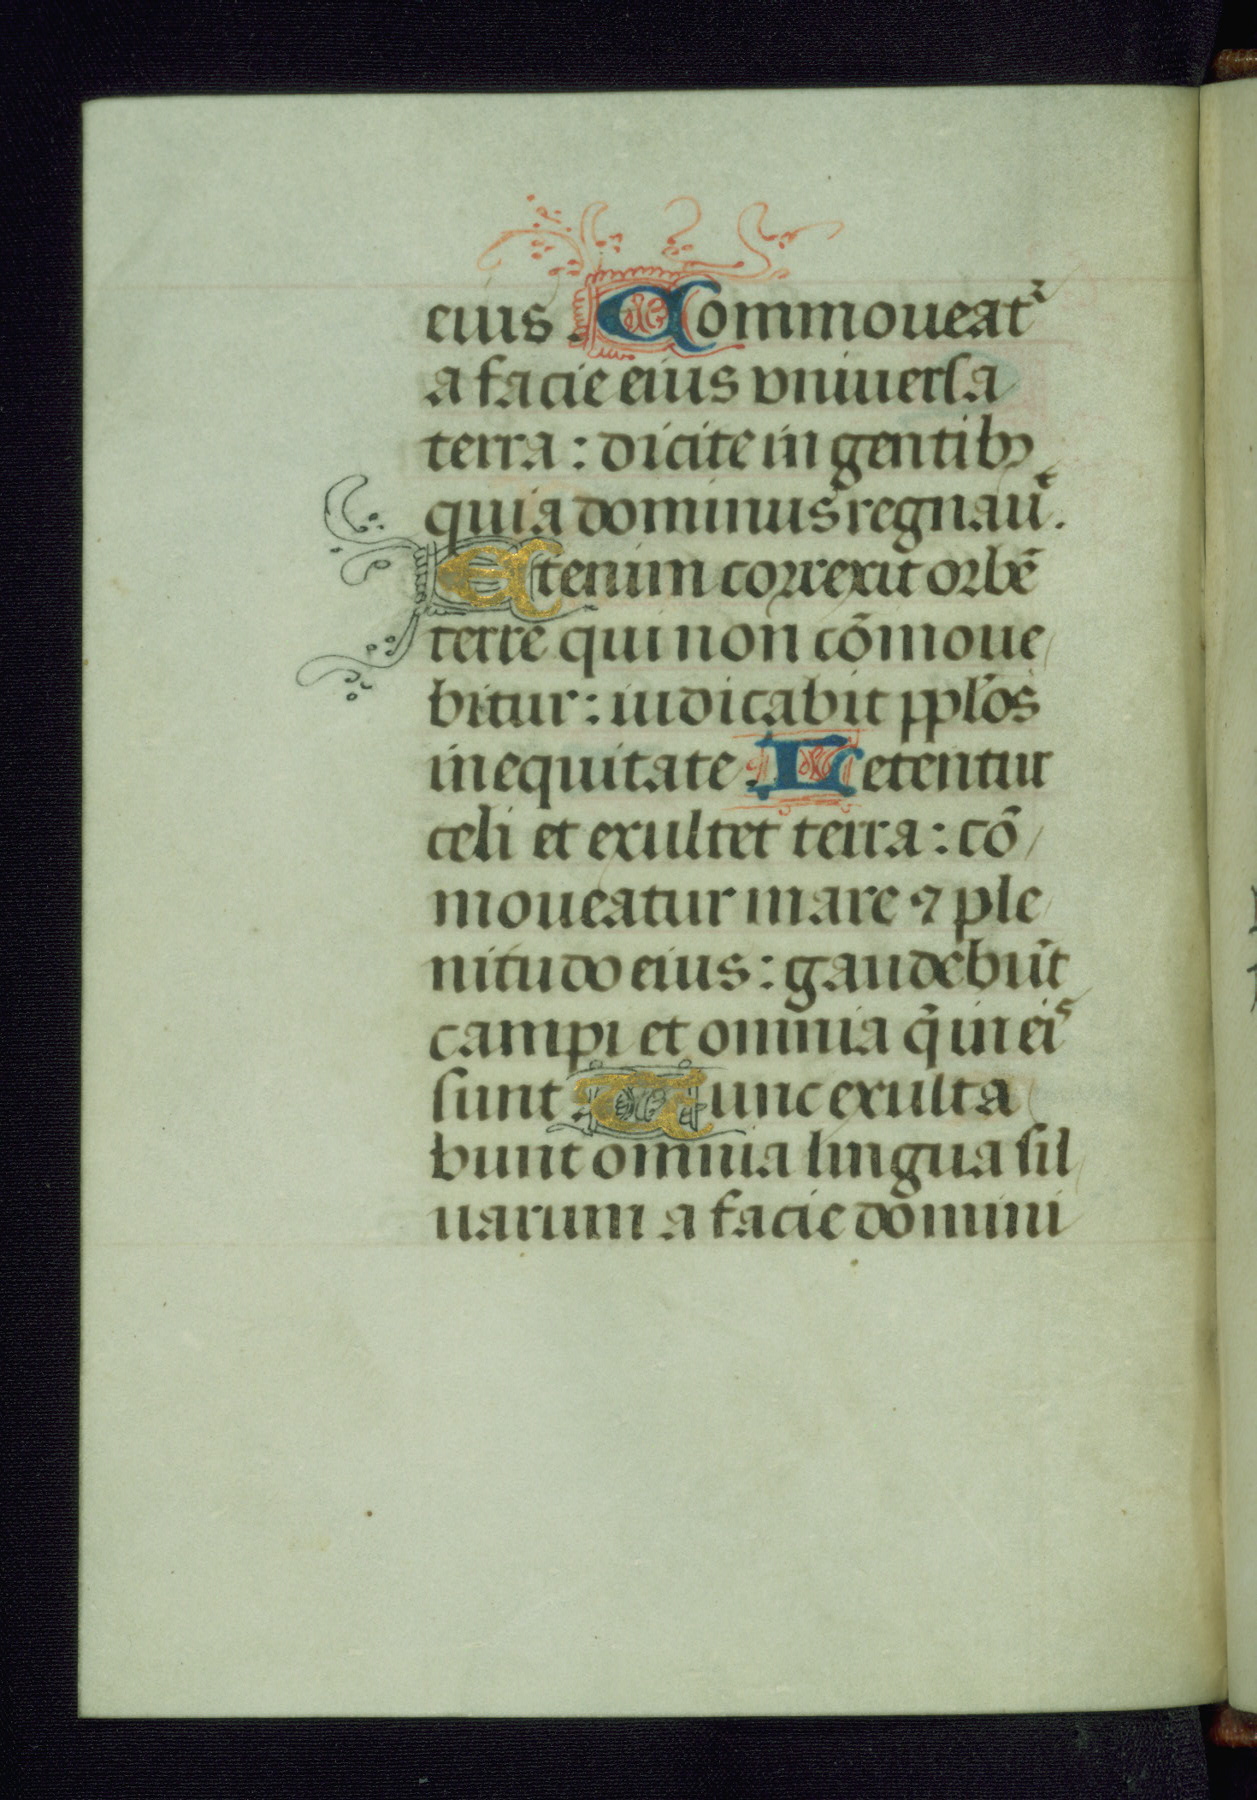 eius . Commoueat᷑
a facie eius vniuersa
terra : dicite in gentibꝫ
quia dominus regnauᷣt .
Etenim correxit orbē
terre qui non cōmoue
bitur : iudicabit pp̄los
in equitate . Letentur
celi et exultet terra : cō
moueatur mare ⁊ ple
nitudo eius : gaudebūt
campi et omnia q̄ in eis
sunt . Tunc exulta
bunt omnia lingua sil
uarum a facie domini